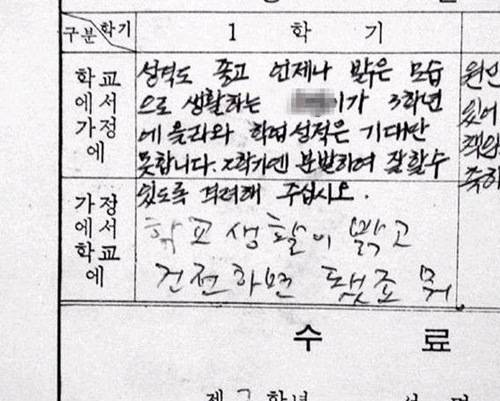 구분 학기
1 학 기
학교
에서
가정
에
성적도 좋고 언제나 밝은 모습
으로 생활하는 이가 3학년
에 올라와 학업성적은 기대만
못합니다. 2학기엔 분발하여 잘할수
있도록 격려해 주십시오.
가정
에서
학교
에
학교생활이 밝고
건전하면 됐죠 뭐
원인
있어
책임
수 료
제 학년